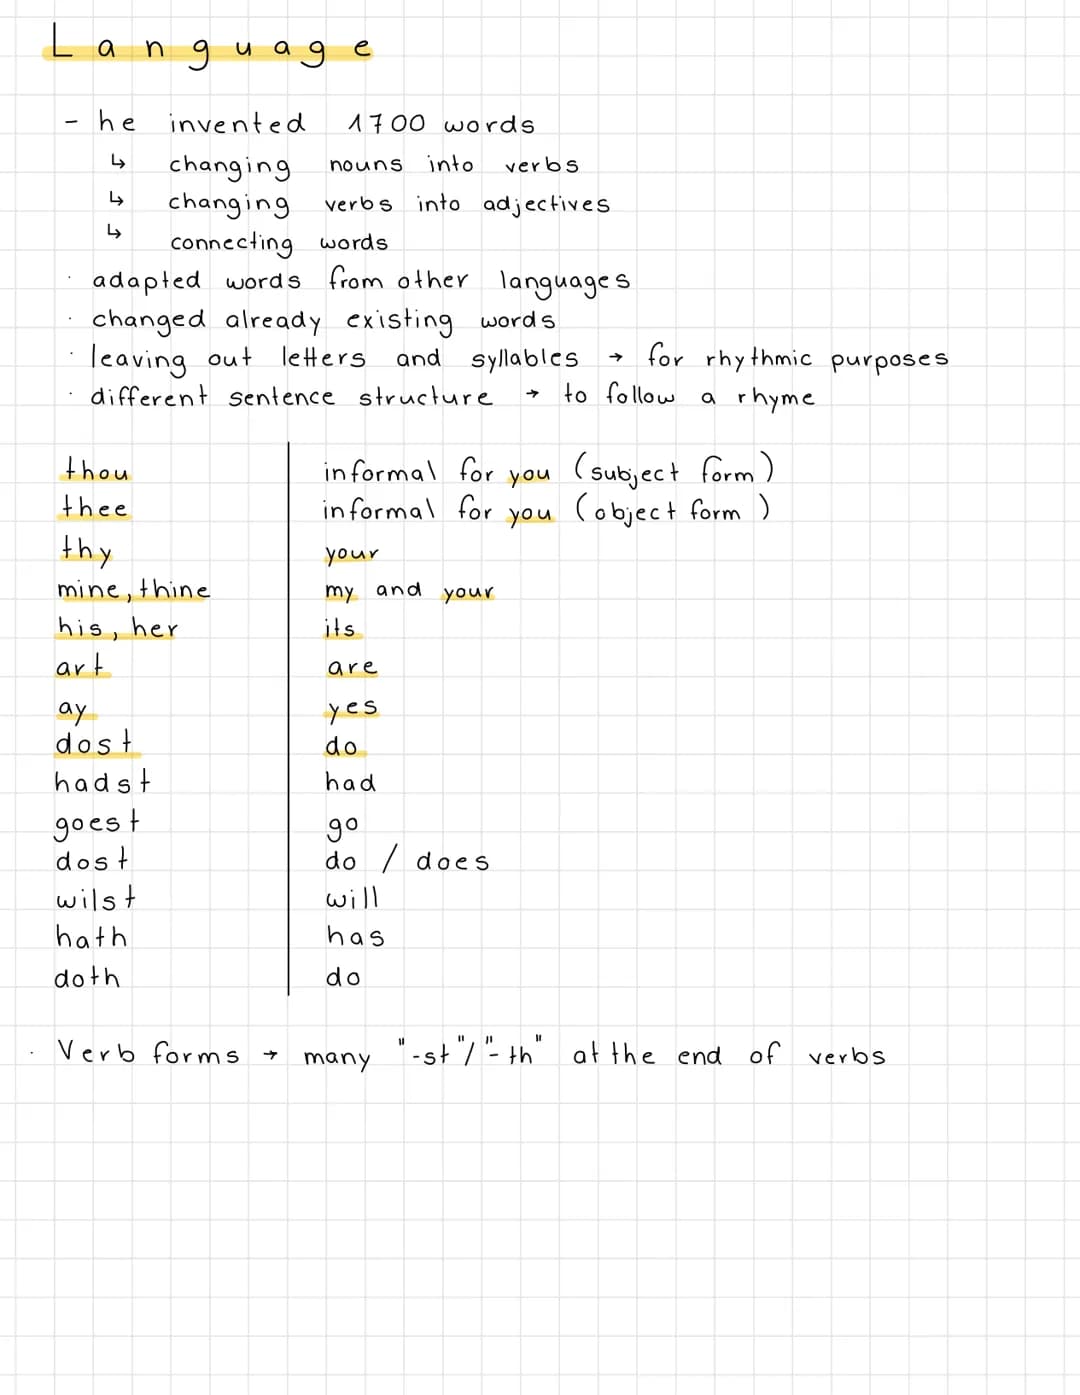 Language
- he invented 1700 words
↳ changing nouns into verbs
↳ changing verbs into adjectives
↳ connecting words
· adapted words from other languages
· changed already existing words
· leaving out letters and syllables → for rhythmic purposes
· different sentence structure → to follow a rhyme
thou informal for you (subject form)
thee informal for you (object form)
thy your
mine, thine my and your
his, her its
art are
ay yes
dost do
hadst had
goest go
dost do / does
wilst will
hath has
doth do
· Verb forms → many "-st"/"-th" at the end of verbs